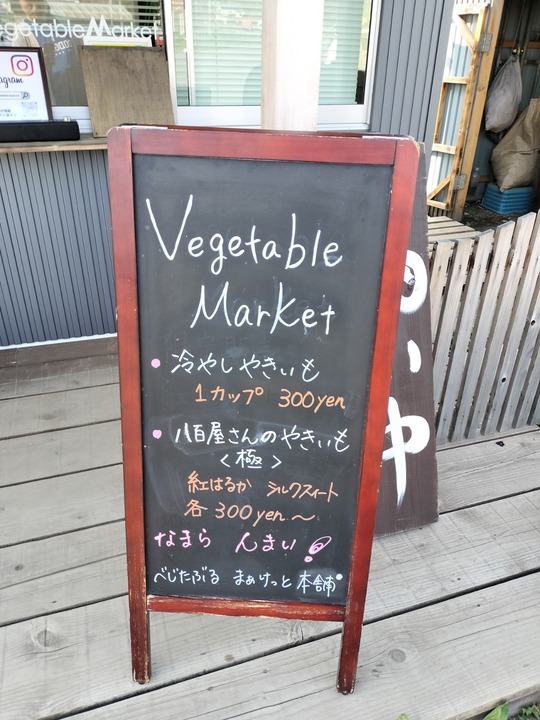 VegetableMarket
Vegetable
Market
• 冷やしやきいも
1カップ 300yen
• 八百屋さんのやきいも
<極>
紅はるか シルクスイート
各 300yen～
なまら んまい!
べじたぶる まぁけっと 本舗